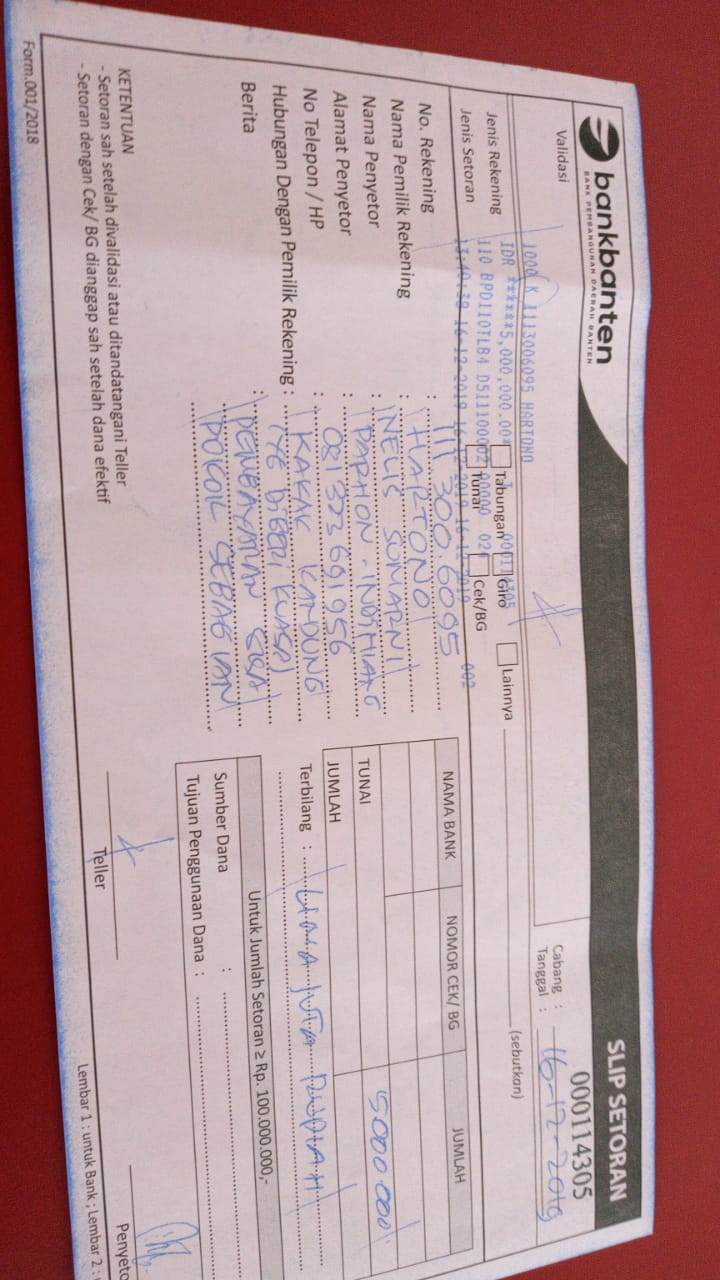 bankbanten
BANK PEMBANGUNAN DAERAH BANTEN
SLIP SETORAN
000114305
Validasi
1000 K 1113006095 HARTONO
IDR ******5,000,000.00* 000114305
110 BPD110TLB4 D51110002 00000 02
13:40:38 16-12-2019 16-12-2019 16-12-2019 002
Cabang :
Tanggal : 16-12-2019
Jenis Rekening Tabungan Giro Lainnya (sebutkan)
Jenis Setoran Tunai Cek/BG
No. Rekening : 111 300.6095
Nama Pemilik Rekening : HARTONO
Nama Penyetor : NELIS SUMARNI
Alamat Penyetor : PARHON. INDIHIANG
No Telepon / HP : 081 323 691956
Hubungan Dengan Pemilik Rekening : KAKAK KANDUNG
(YG DIBERI KUASA)
Berita : PEMBAYARAN SISA
POKOK SEBAGIAN
NAMA BANK NOMOR CEK/ BG JUMLAH
TUNAI 5000 000
JUMLAH
Terbilang : LIMA JUTA RUPIAH
Untuk Jumlah Setoran ≥ Rp. 100.000.000,-
Sumber Dana :
Tujuan Penggunaan Dana :
KETENTUAN
- Setoran sah setelah divalidasi atau ditandatangani Teller
- Setoran dengan Cek/ BG dianggap sah setelah dana efektif
Teller
Penyeto
Form.001/2018
Lembar 1 : untuk Bank ; Lembar 2 :